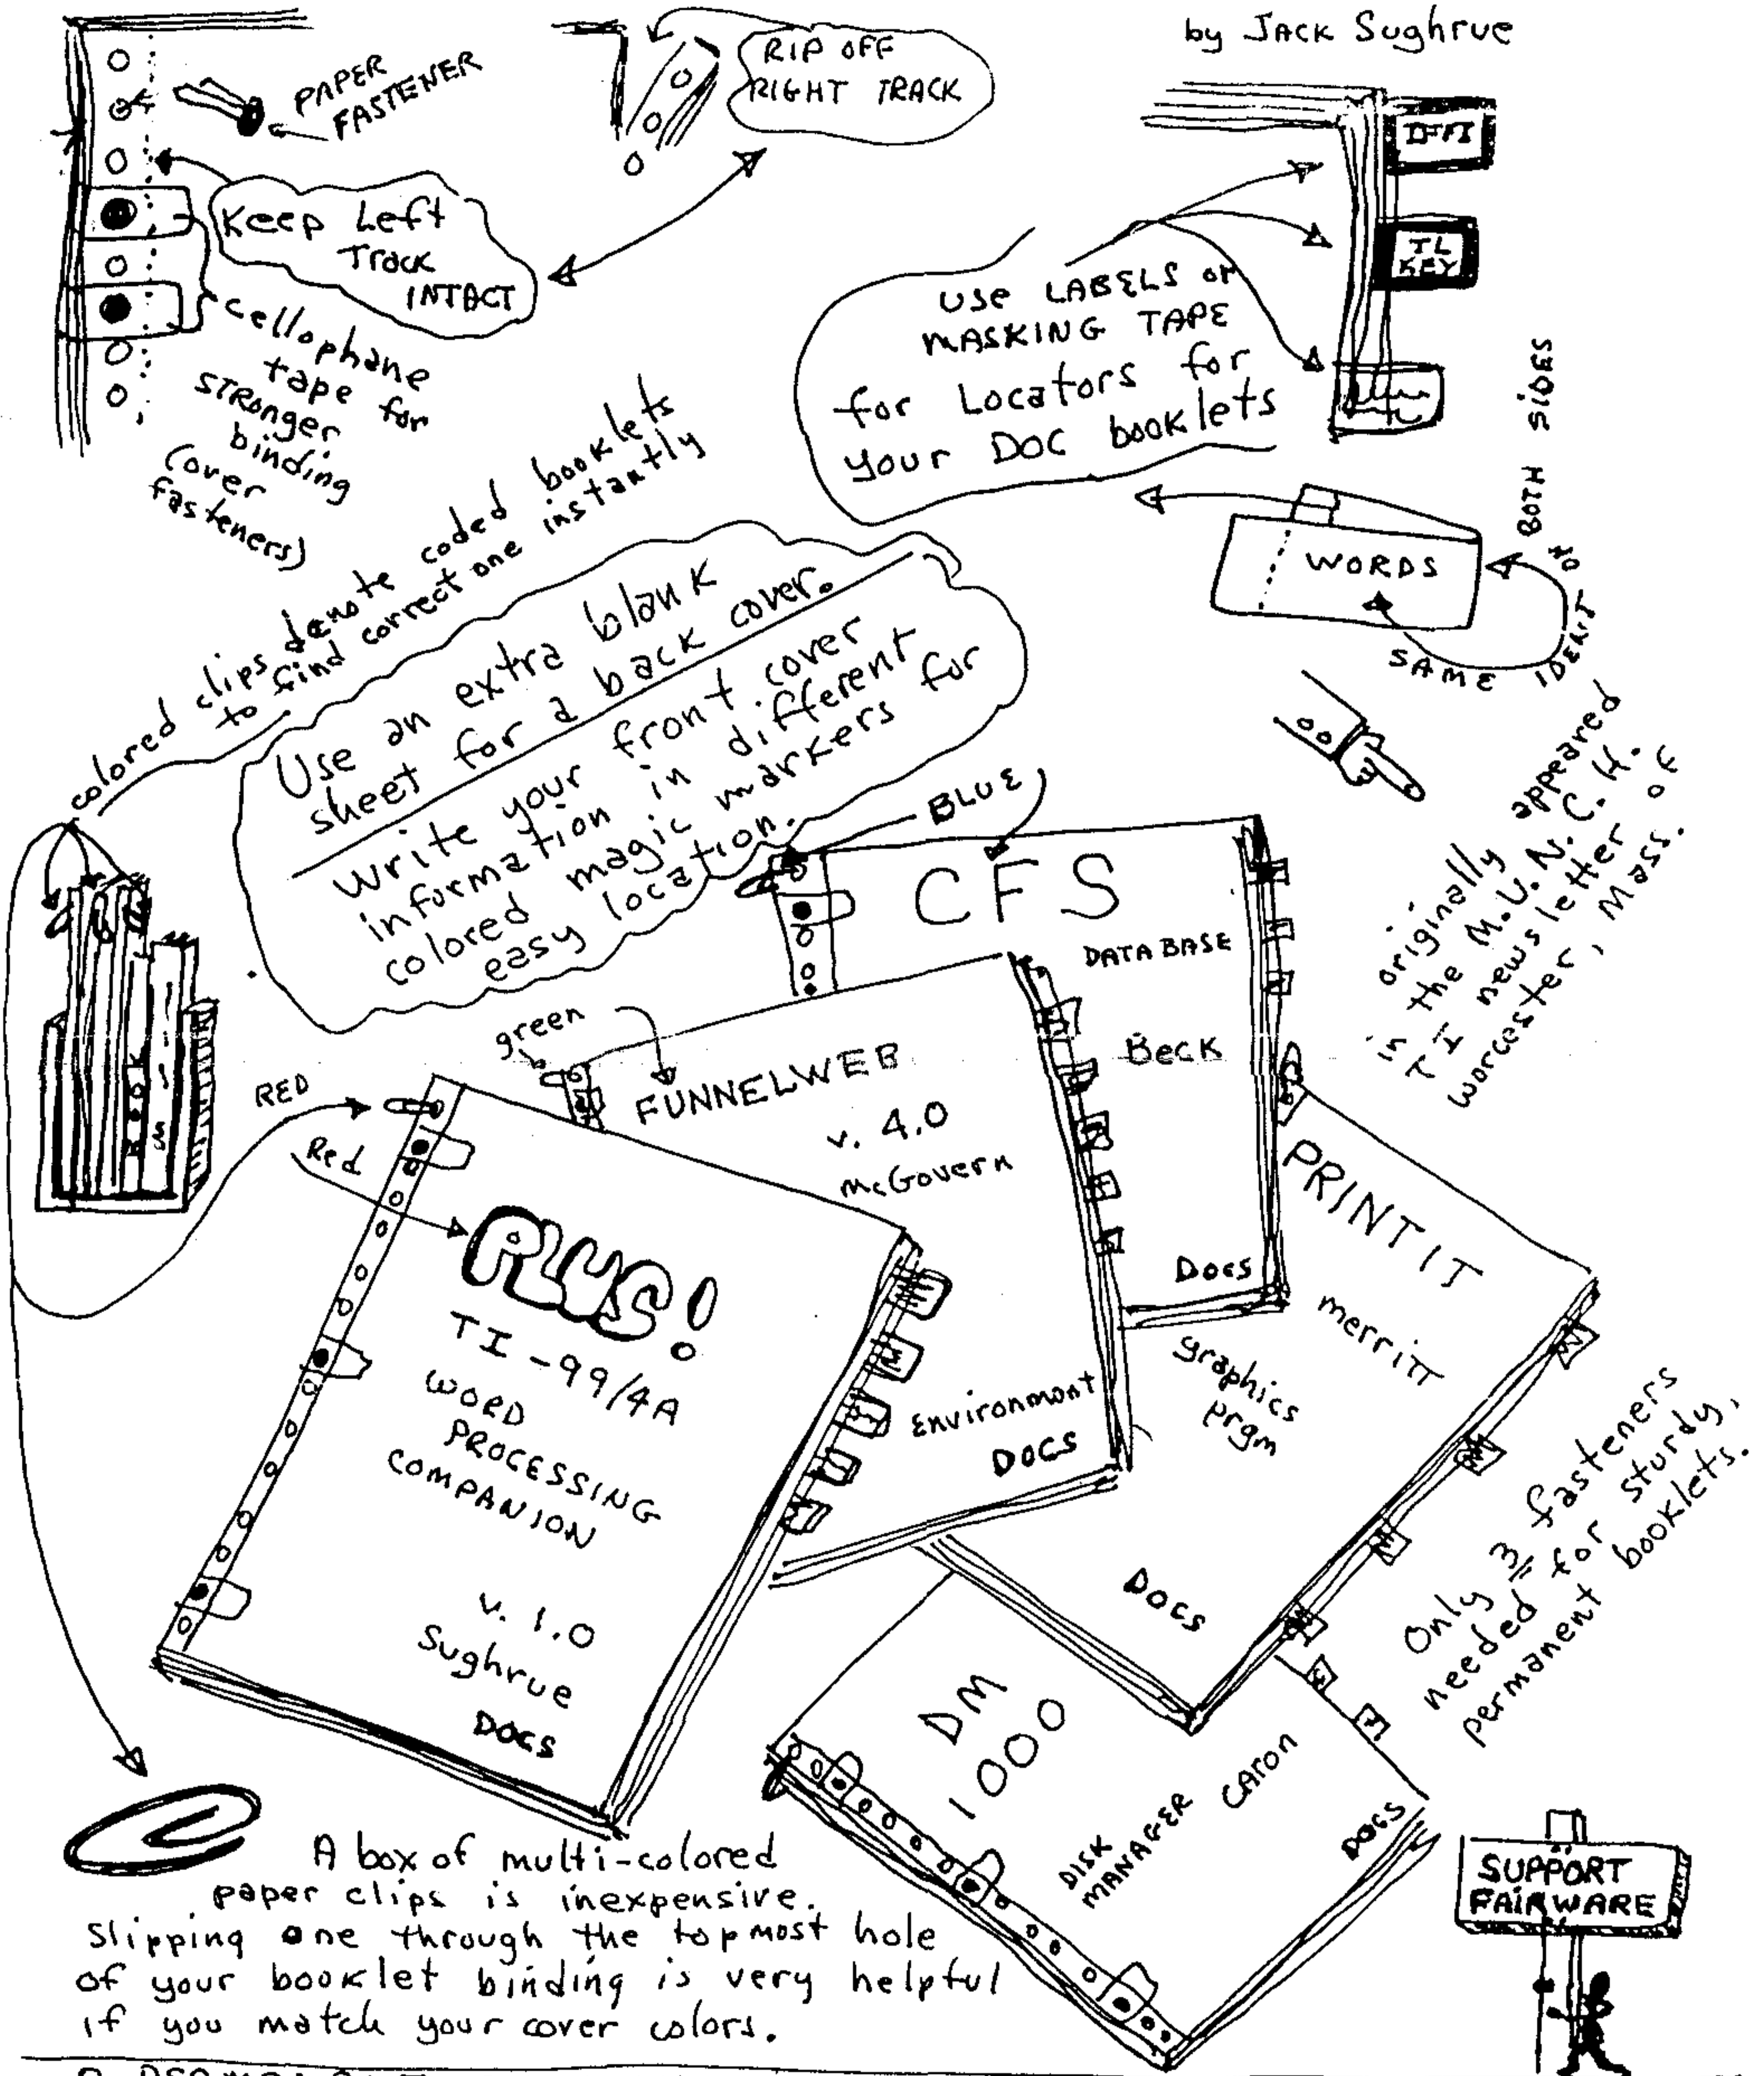 by JACK Sughrue
PAPER
FASTENER
RIP OFF
RIGHT TRACK
Keep Left
Track
INTACT
cellophane
tape for
STRONGER
binding
(over
fasteners)
TL
KEY
USE LABELS or
MASKING TAPE
for Locators for
your DOC booklets
BOTH SIDES
WORDS
SAME
colored clips denote coded booklets
to find correct one instantly
Use an extra blank
sheet for a back cover.
Write your front cover
information in different
colored magic markers for
easy location.
originally appeared
in the M.U.N.C.H.
TI newsletter of
Worcester, Mass.
BLUE
CFS
DATABASE
Beck
Docs
green
FUNNELWEB
v. 4.0
McGovern
Environmont
DOCS
RED
Red
PLUS!
TI-99/4A
WORD
PROCESSING
COMPANION
v. 1.0
Sughrue
DOCS
PRINTIT
merritt
graphics
prgm
DOCS
Only 3 fasteners
needed for sturdy,
permanent booklets.
DM
1000
DISK
MANAGER
CARON
DOCS
A box of multi-colored
paper clips is inexpensive.
Slipping one through the topmost hole
of your booklet binding is very helpful
if you match your cover colors.
SUPPORT
FAIRWARE